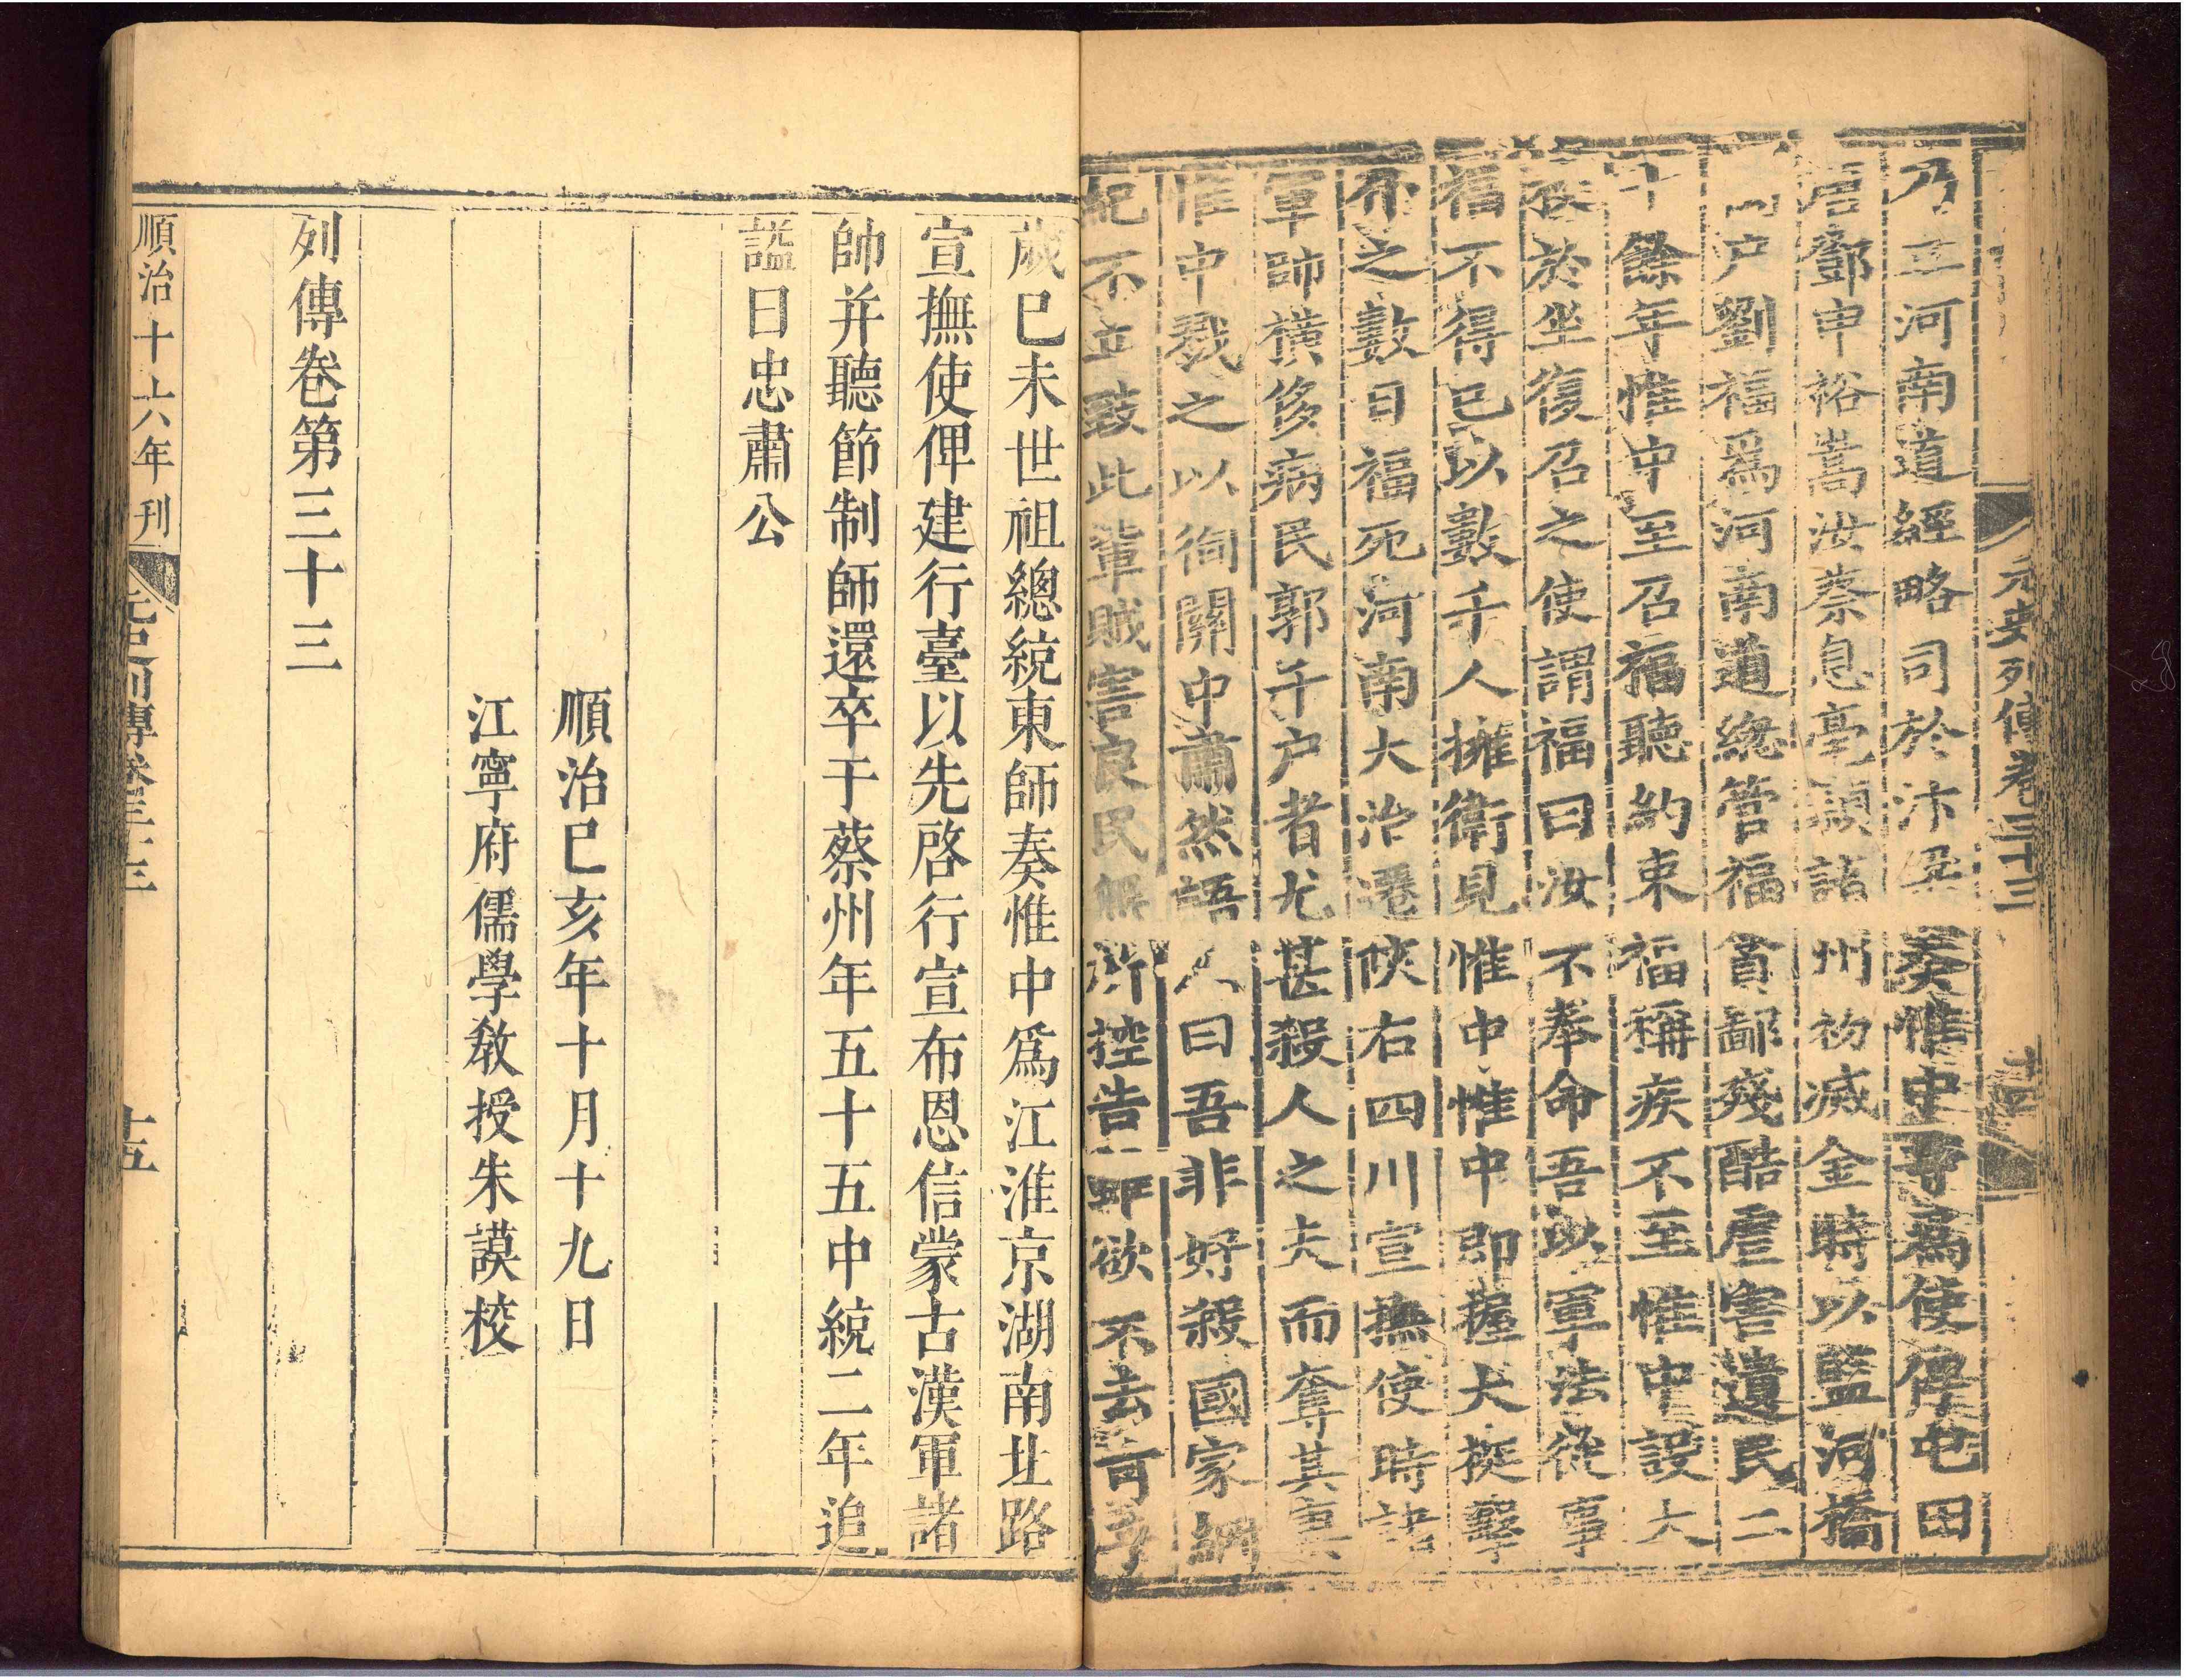 元史列傳卷三十三
乃立河南道經略司於汴梁奏惟中等爲使俾屯田
唐鄧申裕嵩汝蔡息亳潁諸州初滅金時以監河橋
戶劉福爲河南道總管福貪鄙殘酷虐害遺民二
十餘年惟中至召福聽約束福稱疾不至惟中設大
於坐復召之使謂福曰汝不奉命吾以軍法從事
福不得已以數千人擁衛見惟中惟中即握大挺擊
仆之數日福死河南大治遷陝右四川宣撫使時諸
軍帥橫侈病民郭千户者尤甚殺人之夫而奪其妻
惟中戮之以徇關中肅然語人曰吾非好殺國家綱
紀不立致此輩賊害良民無所控告雖欲不去可乎
歲巳未世祖總統東師奏惟中爲江淮京湖南北路
宣撫使俾建行臺以先啓行宣布恩信蒙古漢軍諸
帥并聽節制師還卒于蔡州年五十五中統二年追
謚曰忠肅公
順治巳亥年十月十九日
江寧府儒學敎授朱謨校
列傳卷第三十三
順治十六年刊
元史列傳卷三十三
十五